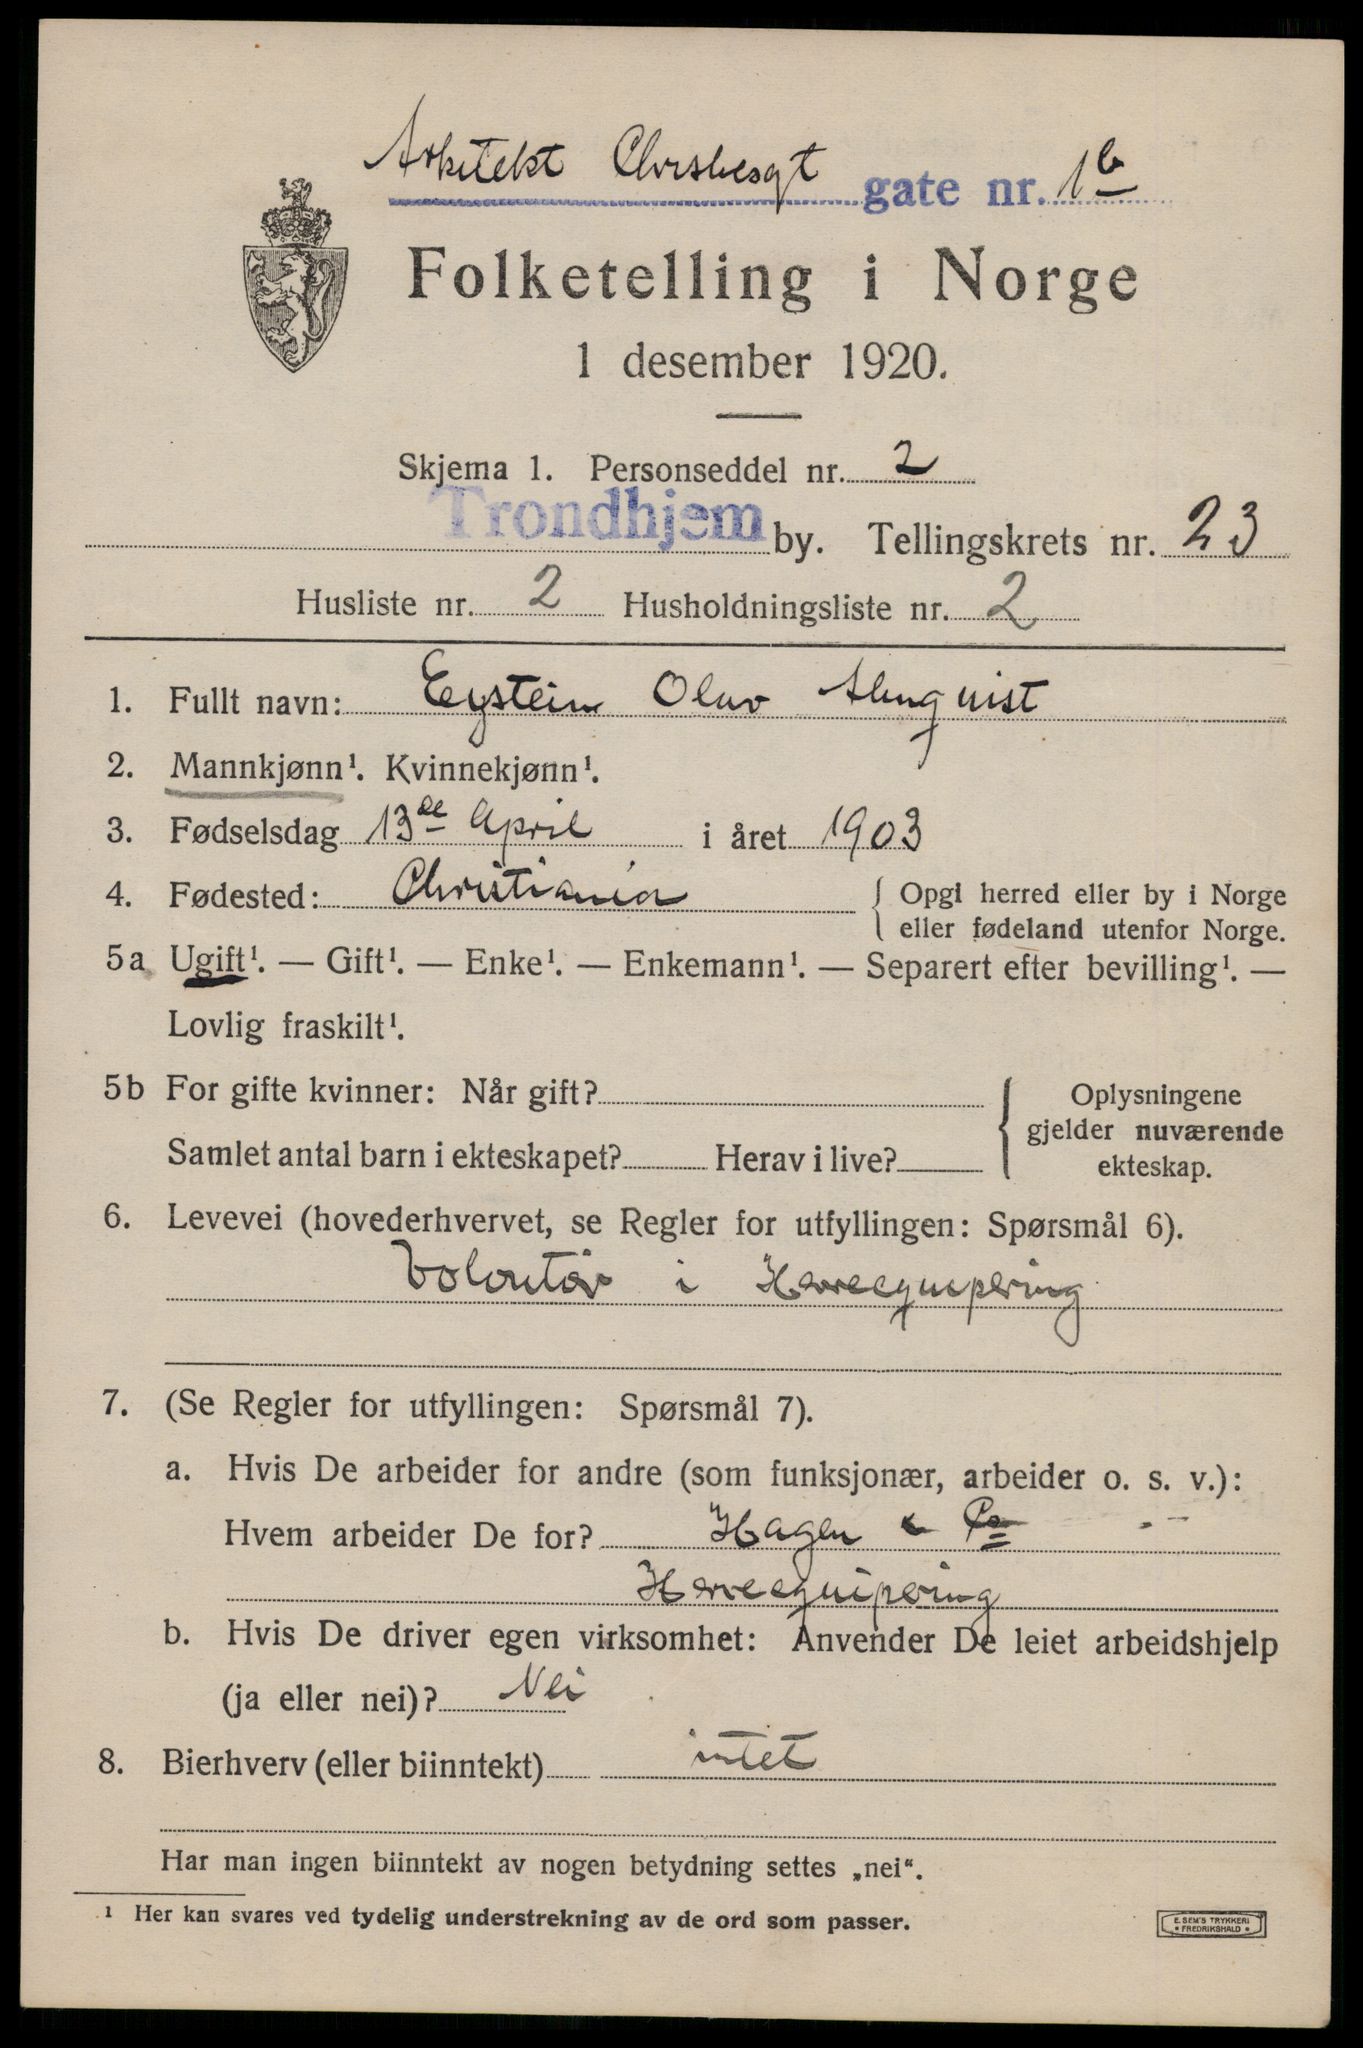 Arkitekt Christiesgt gate nr. 1b
Folketelling i Norge
1 desember 1920.
Skjema 1. Personseddel nr. 2
Trondhjem by. Tellingskrets nr. 23
Husliste nr. 2 Husholdningsliste nr. 2
1. Fullt navn: Eystein Olav Almquist
2. Mannkjønn¹. Kvinnekjønn¹.
3. Fødselsdag 13de April i året 1903
4. Fødested: Christiania { Opgi herred eller by i Norge
eller fødeland utenfor Norge.
5a Ugift¹. — Gift¹. — Enke¹. — Enkemann¹. — Separert efter bevilling¹. —
Lovlig fraskilt¹.
5b For gifte kvinner: Når gift? { Oplysningene
gjelder nuværende
Samlet antal barn i ekteskapet? Herav i live? ekteskap.
6. Levevei (hovederhvervet, se Regler for utfyllingen: Spørsmål 6).
Volontør i Herreequipering
7. (Se Regler for utfyllingen: Spørsmål 7).
a. Hvis De arbeider for andre (som funksjonær, arbeider o. s. v.):
Hvem arbeider De for? Hagen & Co
Herreequipering
b. Hvis De driver egen virksomhet: Anvender De leiet arbeidshjelp
(ja eller nei)? Nei
8. Bierhverv (eller biinntekt) intet
Har man ingen biinntekt av nogen betydning settes „nei“.
¹ Her kan svares ved tydelig understrekning av de ord som passer.
E. SEM'S TRYKKERI
• FREDRIKSHALD •